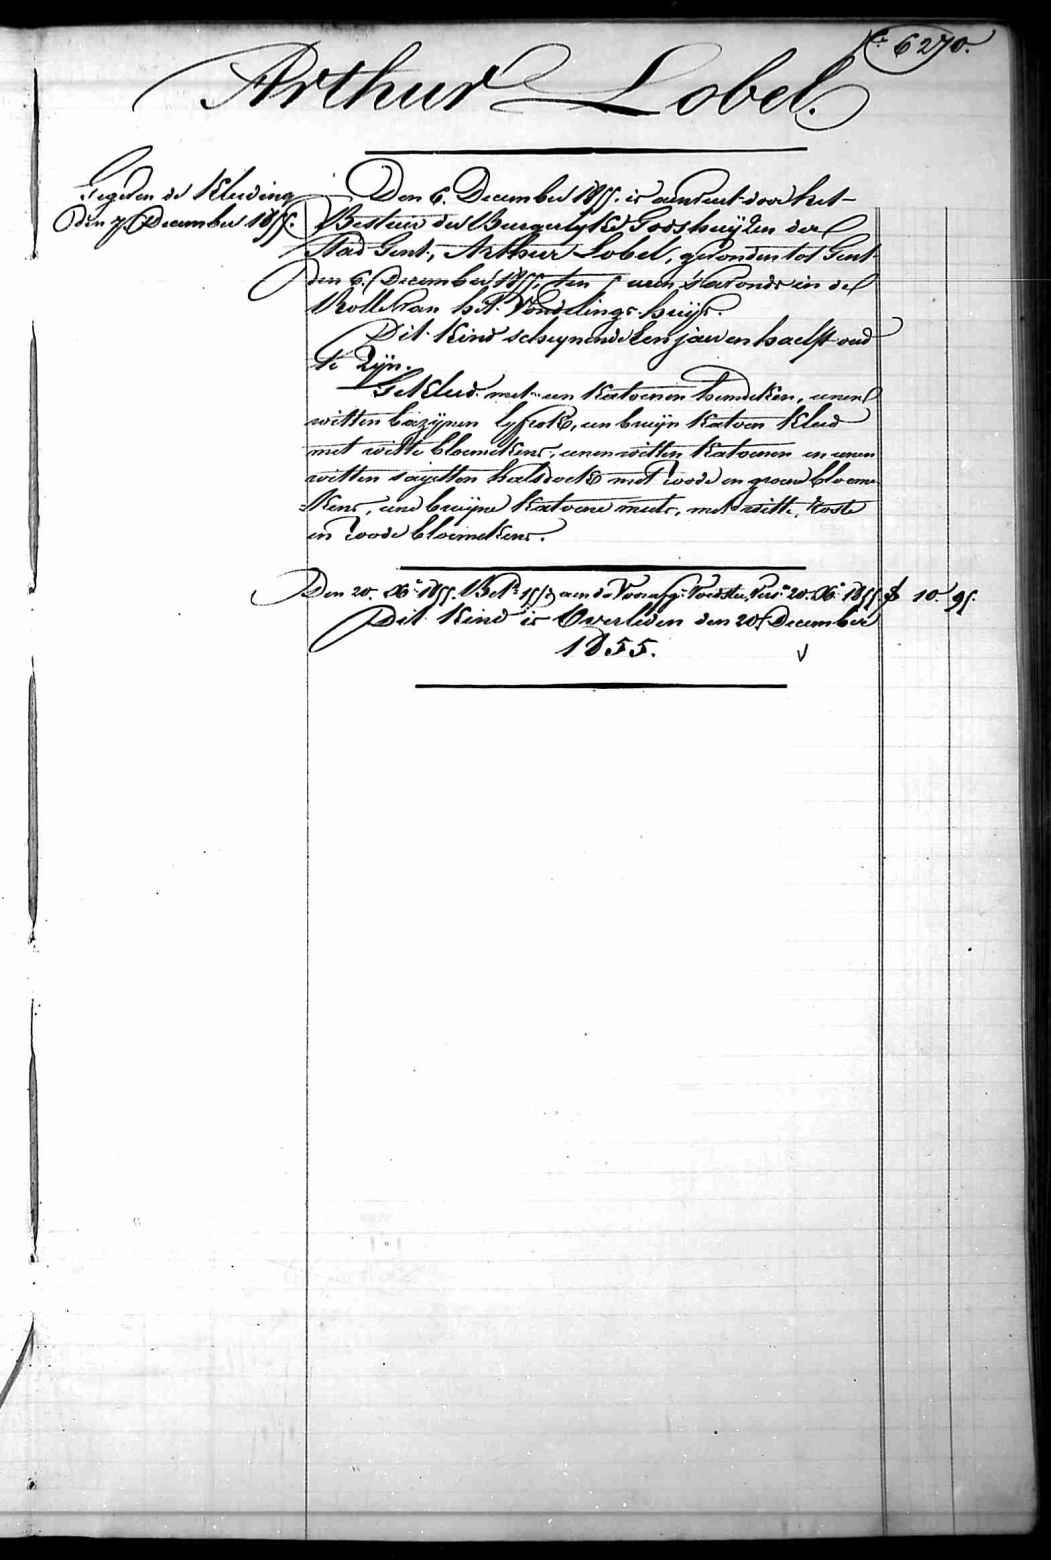 6270.
Arthur Lobel.
Gegeven de Kleeding
den 7. December 1855.
Den 6. December 1855. is aenveerd door het
Bestuur der Burgerlyke Godshuyzen der
Stad Gent, Arthur Lobel, gevonden tot Gent
den 6. December 1855, ten 5 uren 's avonds in de
Rolle van het Vondelings huys.
Dit Kind schynende Een jaer en haelf oud
te Zyn.
Gekleed met een Katoenen hemdeken, eenen
witten bazynen lyfrok, een bruyn Katoen Kleed
met witte bloemekens, eenen witten Katoenen en eenen
witten sayetten halsdoek met roode en groene bloeme-
kens, eene bruyne Katoene muts, met witte, roste
en roode bloemekens.
Den 20. Xb. 1855. aen de Voedster 20. Xb. 1855 10. 95.
Dit Kind is Overleden den 20. December
1855.